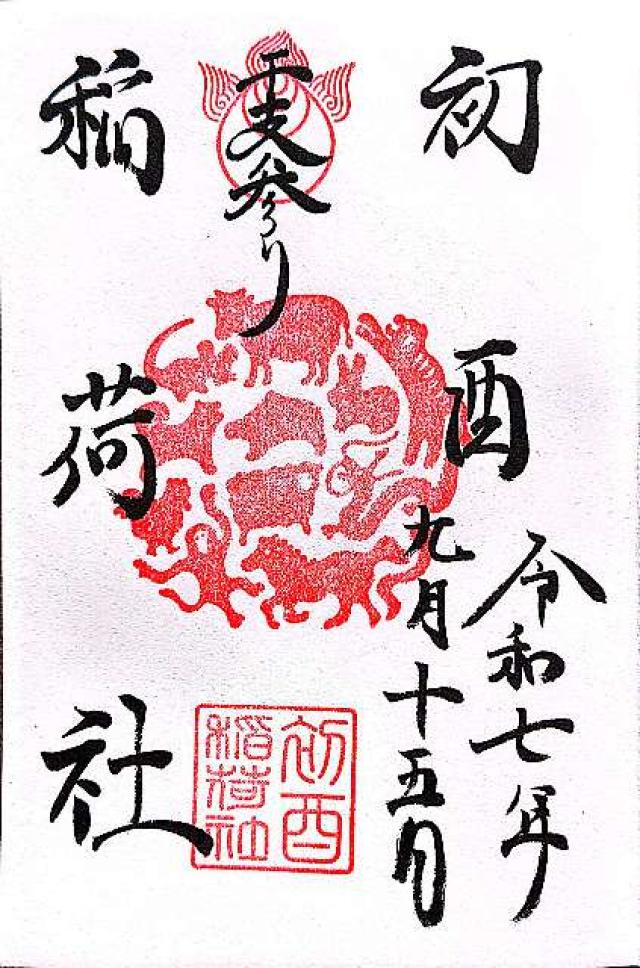 初酉
令和七年
九月十五日
干支参り
稲荷社
初酉
稲荷社